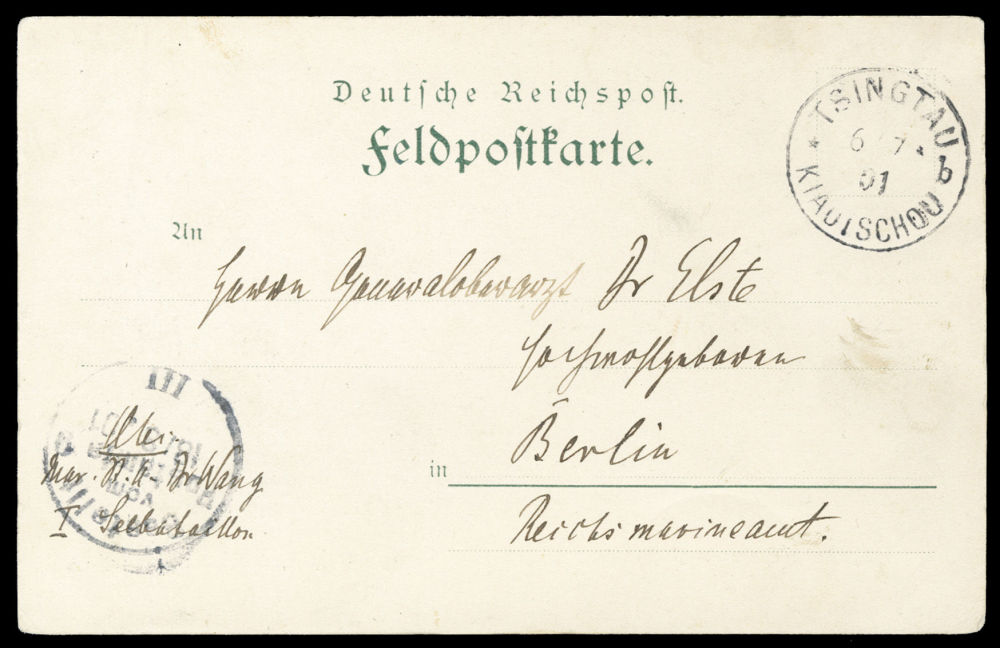 Deutsche Reichspost.
Feldpostkarte.
TSINGTAU
6 7
01
b
KIAUTSCHOU
An
Herrn Generaloberarzt Dr Elste
Hochwohlgeboren
in Berlin
Reichsmarineamt.
Abs.
Mar. St. A. Dr Wang
I Seebataillon